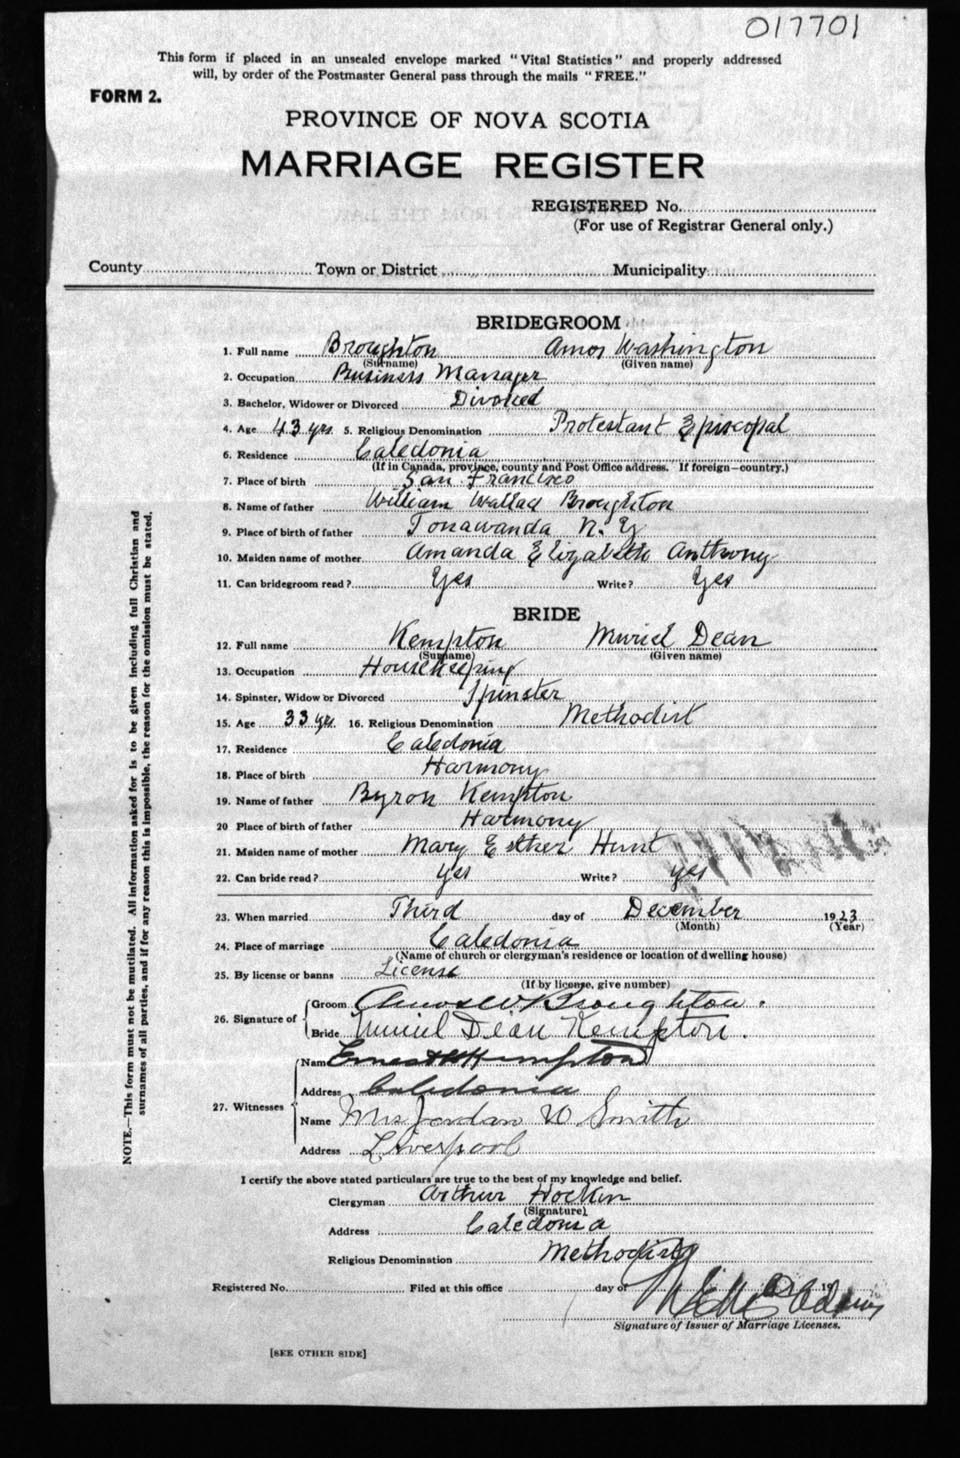 017701
This form if placed in an unsealed envelope marked "Vital Statistics" and properly addressed
will, by order of the Postmaster General pass through the mails "FREE."
FORM 2.
PROVINCE OF NOVA SCOTIA
MARRIAGE REGISTER
REGISTERED No.
(For use of Registrar General only.)
County Town or District Municipality
BRIDEGROOM
1. Full name Broughton Amos Washington
(Surname) (Given name)
2. Occupation Business Manager
3. Bachelor, Widower or Divorced Divorced
4. Age 43 yrs. 5. Religious Denomination Protestant Episcopal
6. Residence Caledonia
(If in Canada, province, county and Post Office address. If foreign—country.)
7. Place of birth San Francisco
8. Name of father William Wallad Broughton
9. Place of birth of father Tonawanda N.Y
10. Maiden name of mother Amanda Elizabeth Anthony
11. Can bridegroom read? Yes Write? Yes
BRIDE
12. Full name Kempton Muriel Dean
(Surname) (Given name)
13. Occupation Housekeeping
14. Spinster, Widow or Divorced Spinster
15. Age 33 yrs. 16. Religious Denomination Methodist
17. Residence Caledonia
18. Place of birth Harmony
19. Name of father Byron Kempton
20 Place of birth of father Harmony
21. Maiden name of mother Mary Esther Hunt
22. Can bride read? yes Write? yes
23. When married Third day of December 1923
(Month) (Year)
24. Place of marriage Caledonia
(Name of church or clergyman's residence or location of dwelling house)
25. By license or banns License
(If by license, give number)
26. Signature of Groom Amos W Broughton.
Bride Muriel Dean Kempton.
27. Witnesses Name Ernest H Kempton
Address Caledonia
Name Mrs Jordan W Smith
Address Liverpool
I certify the above stated particulars are true to the best of my knowledge and belief.
Clergyman Arthur Hockin
(Signature)
Address Caledonia
Religious Denomination Methodist
Registered No. Filed at this office day of 19
Signature of Issuer of Marriage Licenses.
[SEE OTHER SIDE]
NOTE.—This form must not be mutilated. All information asked for is to be given including full Christian and
surnames of all parties, and if for any reason this is impossible, the reason for the omission must be stated.